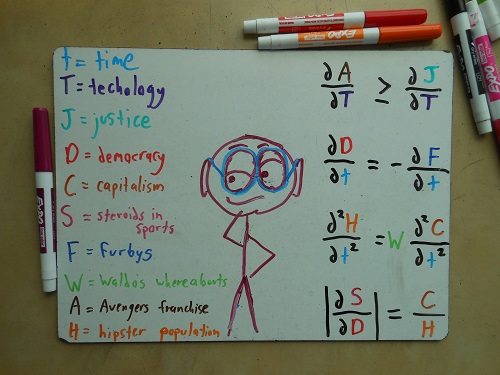 t = time
T = techology
J = justice
D = democracy
C = capitalism
S = steroids in
sports
F = Furbys
W = Waldo's whereabouts
A = Avengers franchise
H = hipster population
∂A/∂T ≥ ∂J/∂T
∂D/∂t = -∂F/∂t
∂²H/∂t² = W ∂²C/∂t²
|∂S/∂D| = C/H
EXPO
EXPO